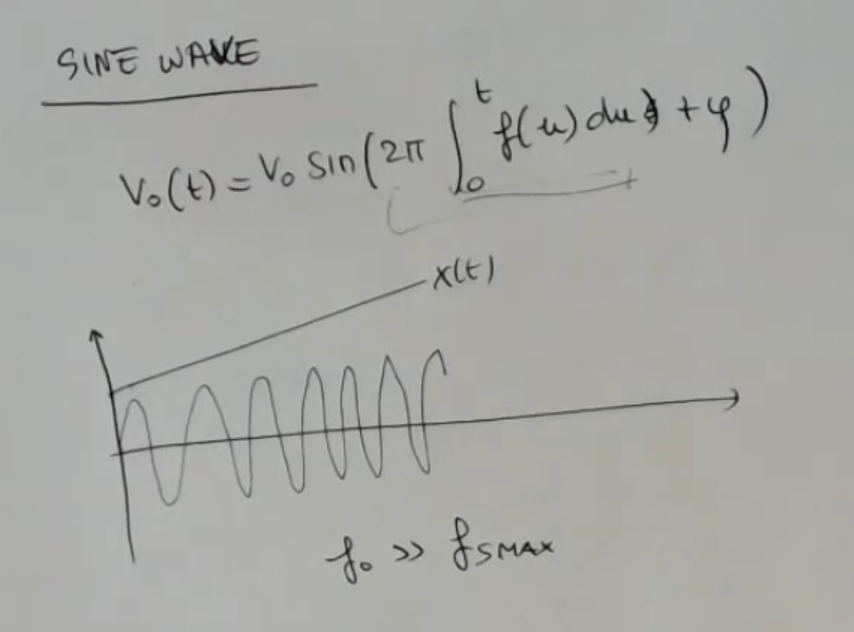 SINE WAVE
V₀(t) = V₀ sin(2π ∫₀ᵗ f(u) du + φ)
x(t)
f₀ >> fSMAX